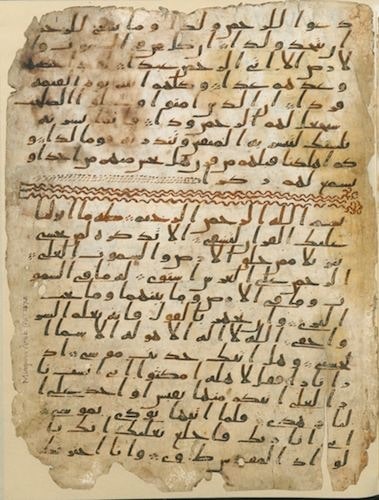 دعوا للرحمن ولدا وما ينبغي للرحمن
ان يتخذ ولدا ان كل من في السموت وا
لارض الا اتي الرحمن عبدا لقد احصيهم
وعدهم عدا وكلهم اتيه يوم القيمه
فردا ان الذين امنوا وعملوا الصلحت
سيجعل لهم الرحمن ودا فانما يسرنه
بلسنك لتبشر به المتقين وتنذر به قوما لدا و
كم اهلكنا قبلهم من قرن هل تحس منهم من احد او
تسمع لهم ركزا
بسم الله الرحمن الرحيم طه ما انزلنا
عليك القران لتشقى الا تذكره لمن يخشى
تنزيلا ممن خلق الارض والسموت العلى
الرحمن على العرش استوى له ما في السمو
ت وما في الارض وما بينهما وما تحت
الثرى وان تجهر بالقول فانه يعلم السر
واخفى الله لا اله الا هو له الاسما ا
لحسنى وهل اتيك حديث موسى اذ
را نارا فقال لاهله امكثوا اني انست نا
را لعلي اتيكم منها بقبس او اجد على ا
لنار هدى فلما اتيها نودي يموسى
اني انا ربك فاخلع نعليك انك با
لواد المقدس طوى وانا اخترتك